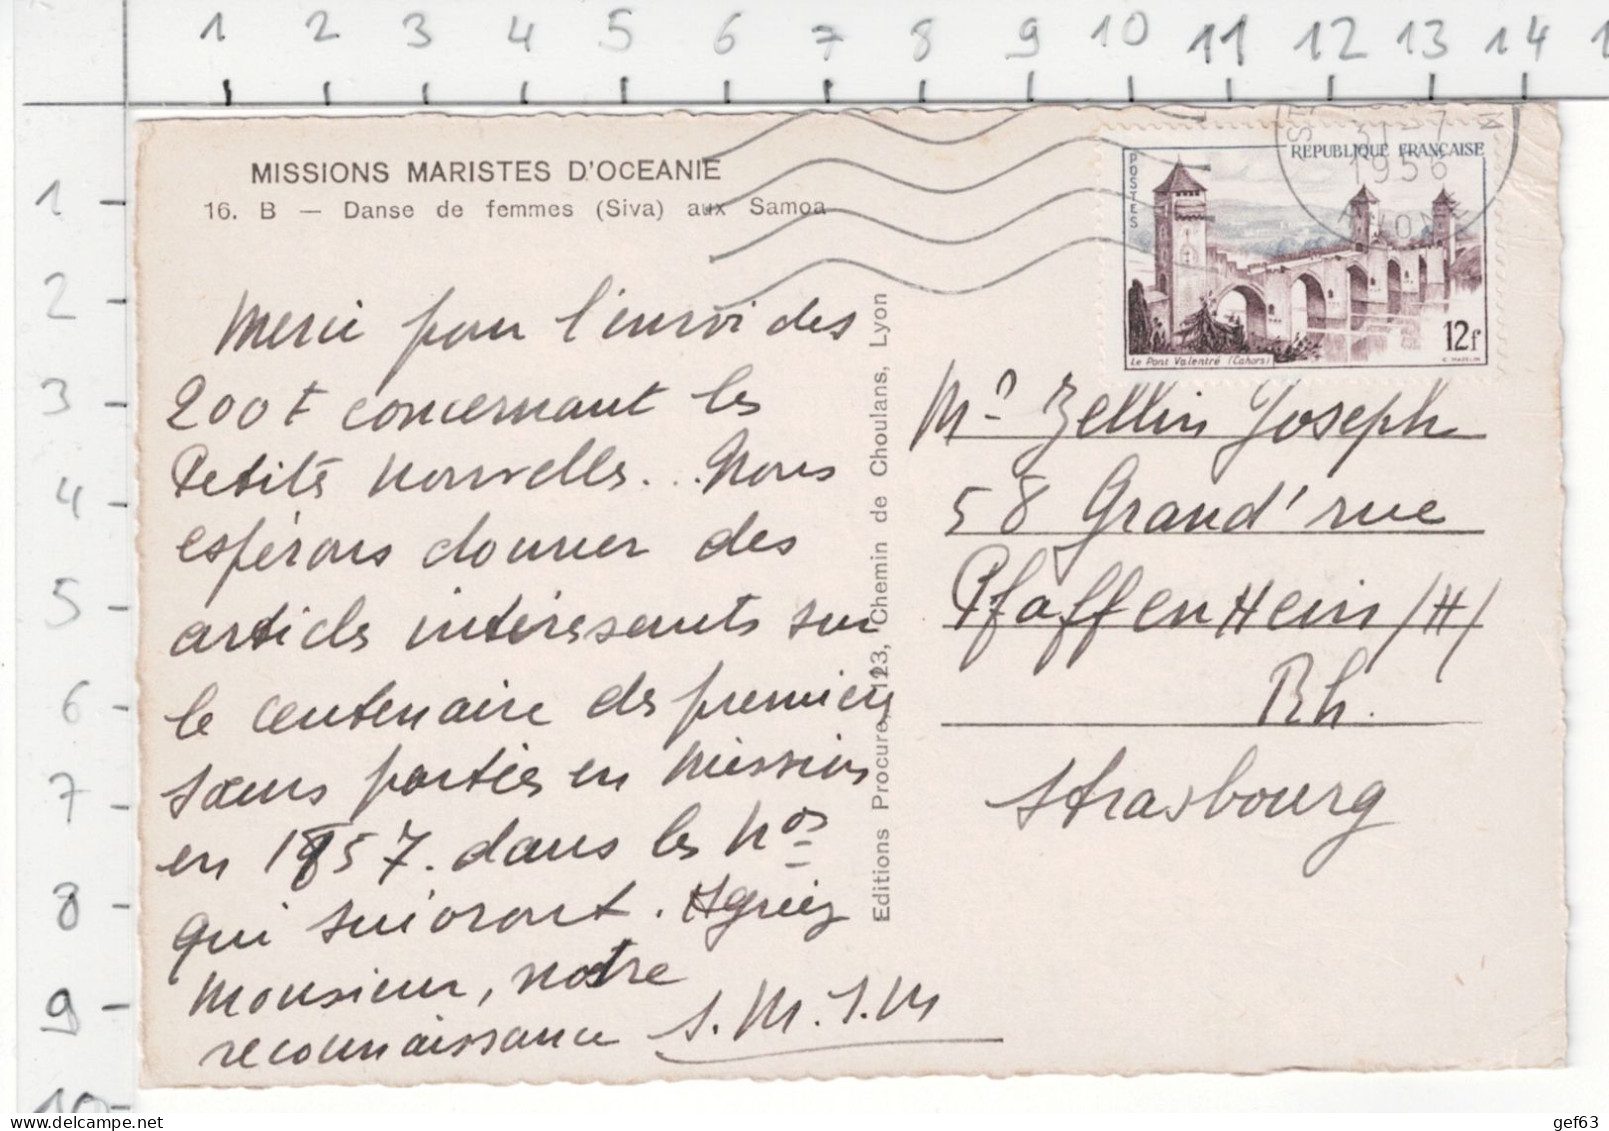 1 2 3 4 5 6 7 8 9 10 11 12 13 14 1
1
2
3
4
5
6
7
8
9
10
MISSIONS MARISTES D'OCEANIE
16. B — Danse de femmes (Siva) aux Samoa
Merci pour l'envoi des
200 f concernant les
Petites nouvelles... Nous
espérons donner des
articles intéressants sur
le centenaire des premières
sœurs parties en mission
en 1857. dans les Nos
qui suivront. Agréez
Monsieur, notre
reconnaissance S.M.S.M
Editions Procure, 123, Chemin de Choulans, Lyon
31-7
1956
RHONE
REPUBLIQUE FRANÇAISE
POSTES
12f
Le Pont Valentré (Cahors)
Mr Zellin Joseph
58 Grand'rue
PfaffenHeim /H/
Rh.
Strasbourg
gef63